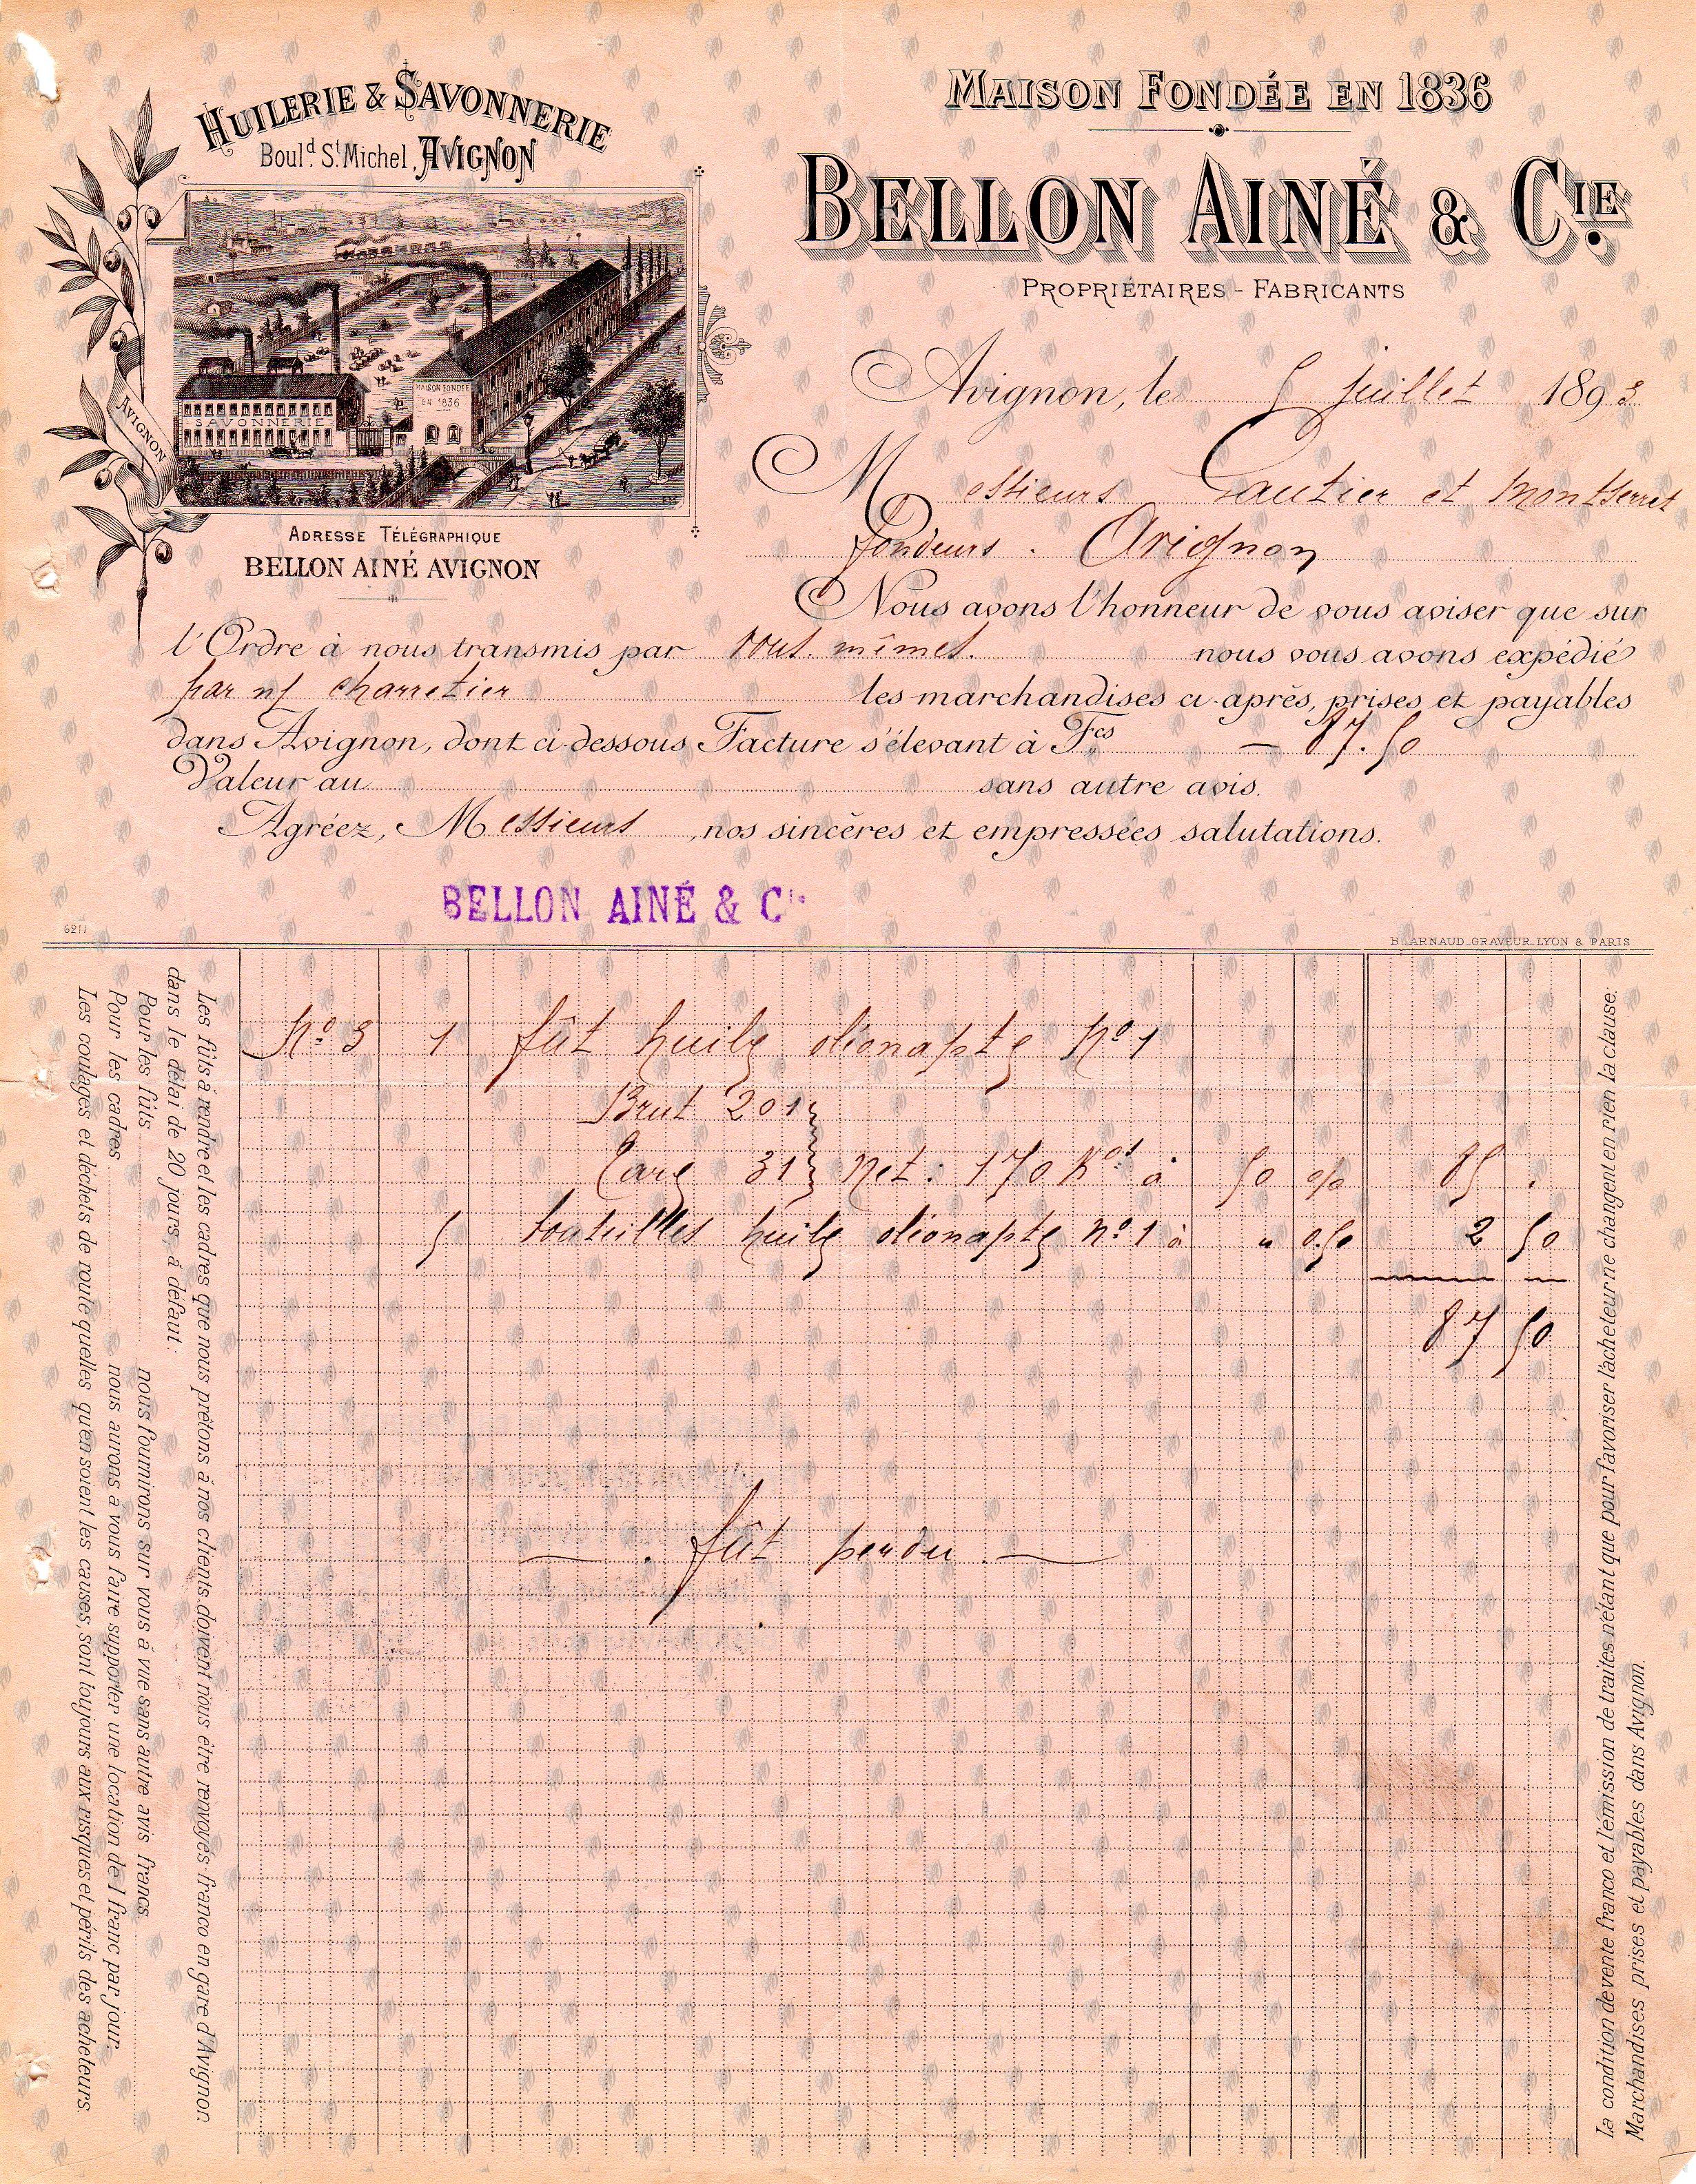 HUILERIE & SAVONNERIE
Boul.d S.t Michel, AVIGNON
AVIGNON
MAISON FONDÉE
EN 1836
SAVONNERIE
ADRESSE TÉLÉGRAPHIQUE
BELLON AINÉ AVIGNON
MAISON FONDÉE EN 1836
BELLON AINÉ & CIE
PROPRIÉTAIRES - FABRICANTS
Avignon, le 5 juillet 1893
Messieurs Gautier et Montserret
fondeurs. Avignon
Nous avons l'honneur de vous aviser que sur
l'Ordre à nous transmis par vous-mêmes. nous vous avons expédié
par n/ charretier les marchandises ci-après, prises et payables
dans Avignon, dont ci-dessous Facture s'élevant à Fcs — 87.50
Valeur au sans autre avis.
Agréez, Messieurs, nos sincères et empressées salutations.
BELLON AINÉ & Cie
6211
B. ARNAUD_GRAVEUR_LYON & PARIS
Nº 3 1 fût huile oléonapte Nº 1
Brut 201
Tare 31 Net: 170 Kos à 50 % 85 .
5 bouteilles huile oléonapte nº 1 à " 0.50 2 50
87 50
— . fût perdu . —
Les fûts à rendre et les cadres que nous prêtons à nos clients doivent nous être renvoyés franco en gare d'Avignon
dans le délai de 20 jours, à défaut:
Pour les fûts nous fournirons sur vous à vue sans autre avis francs
Pour les cadres nous aurons à vous faire supporter une location de 1 franc par jour.
Les coulages et déchets de route quelles qu'en soient les causes, sont toujours aux risques et périls des acheteurs.
La condition de vente franco et l'émission de traites n'étant que pour favoriser l'acheteur ne changent en rien la clause:
Marchandises prises et payables dans Avignon.